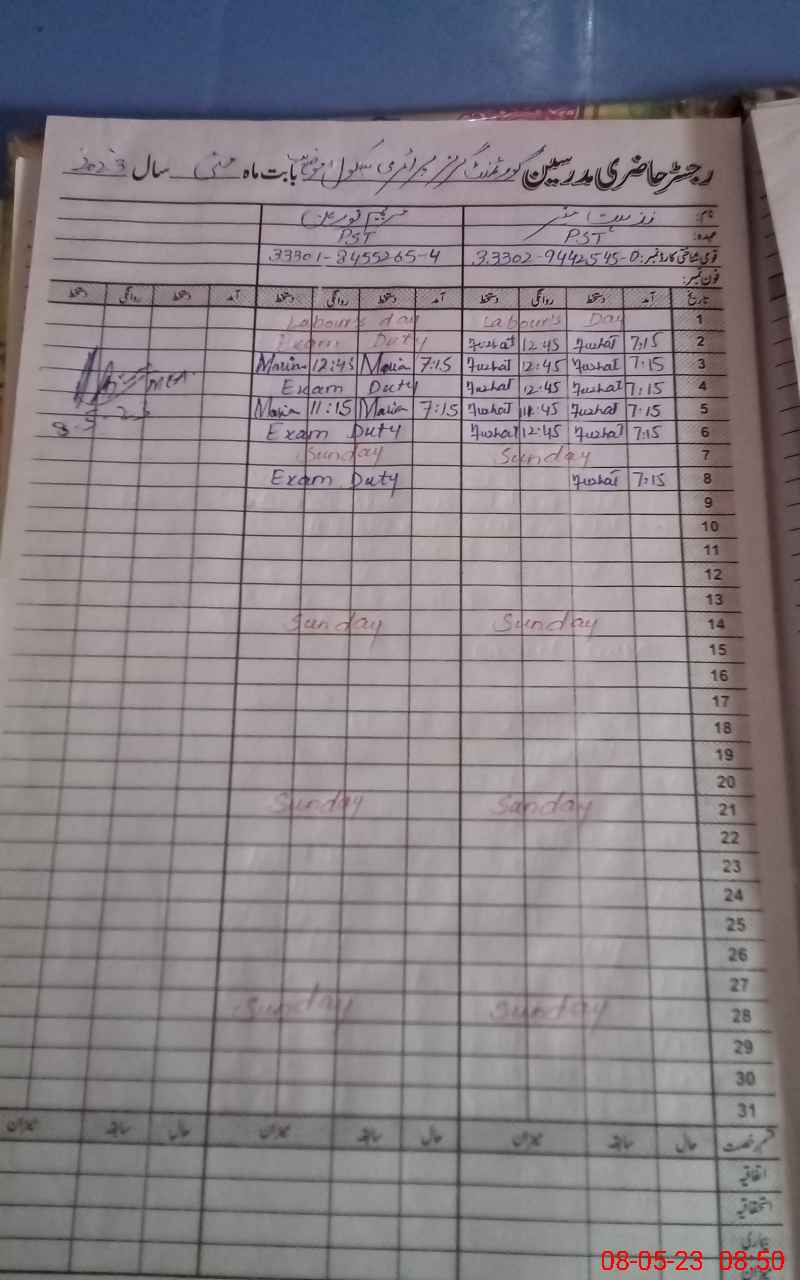 رجسٹر حاضری مدرسین گورنمنٹ گرلز پرائمری سکول بابت ماہ مئی سال 2023
نام:
عہدہ: PST PST
قومی شناختی کارڈ نمبر: 33302-9442545-0 33301-8455265-4
فون نمبر:
تاریخ آمد دستخط روانگی دستخط آمد دستخط روانگی دستخط آمد دستخط روانگی دستخط
1 Labour's Day Labour's day
2 7:15 Fuzhat 12:45 Fuzhat Exam Duty
3 7:15 Fuzhat 12:45 Fuzhat 7:15 Maria 12:45 Maria
4 7:15 Fuzhat 12:45 Fuzhat Exam Duty
5 7:15 Fuzhat 11:45 Fuzhat 7:15 Maria 11:15 Maria
6 7:15 Fuzhat 12:45 Fuzhat Exam Duty
7 Sunday Sunday
8 7:15 Fuzhat Exam Duty
9
10
11
12
13
14 Sunday Sunday
15
16
17
18
19
20
21 Sunday Sunday
22
23
24
25
26
27
28 Sunday Sunday
29
30
31
حال سابقہ میزان حال سابقہ میزان حال سابقہ میزان
اتفاقیہ
استحقاقیہ
بیماری
میزان
8-5-23
08-05-23 08:50